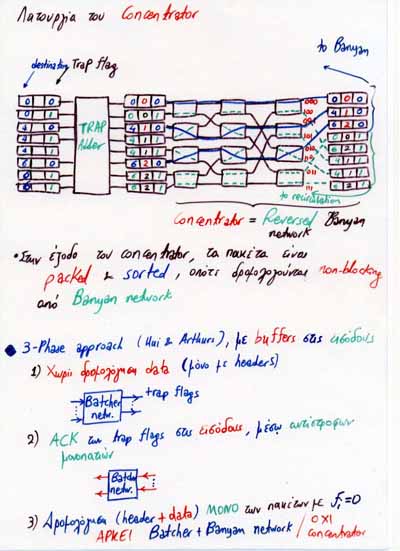 Λειτουργία του Concentrator
to Banyan
destination Trap flag
TRAP Adder
to recirculation
Concentrator = Reversed Banyan
network
• Στην έξοδο του concentrator, τα πακέτα είναι
packed & sorted, οπότε δρομολογούνται non-blocking
από Banyan network
3-Phase approach (Hui & Arthurs), με buffers στις εισόδους
1) Χωρίς δρομολόγηση data (μόνο με headers)
Batcher netw.
+trap flags
2) ACK των trap flags στις εισόδους, μέσω αντίστροφων
μονοπατιών
Batcher netw.
3) Δρομολόγηση (header + data) ΜΟΝΟ των πακέτων με Fi=0
ΑΡΚΕΙ Batcher + Banyan network / ΟΧΙ concentrator